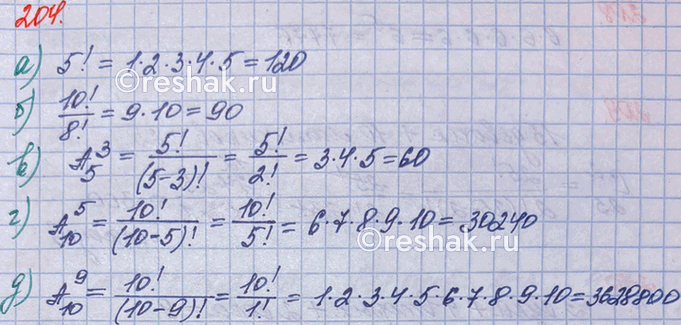 204.
а) 5! = 1·2·3·4·5 = 120
б) 10!/8! = 9·10 = 90
в) A₅³ = 5!/(5-3)! = 5!/2! = 3·4·5 = 60
г) A₁₀⁵ = 10!/(10-5)! = 10!/5! = 6·7·8·9·10 = 30240
д) A₁₀⁹ = 10!/(10-9)! = 10!/1! = 1·2·3·4·5·6·7·8·9·10 = 3628800
©reshak.ru